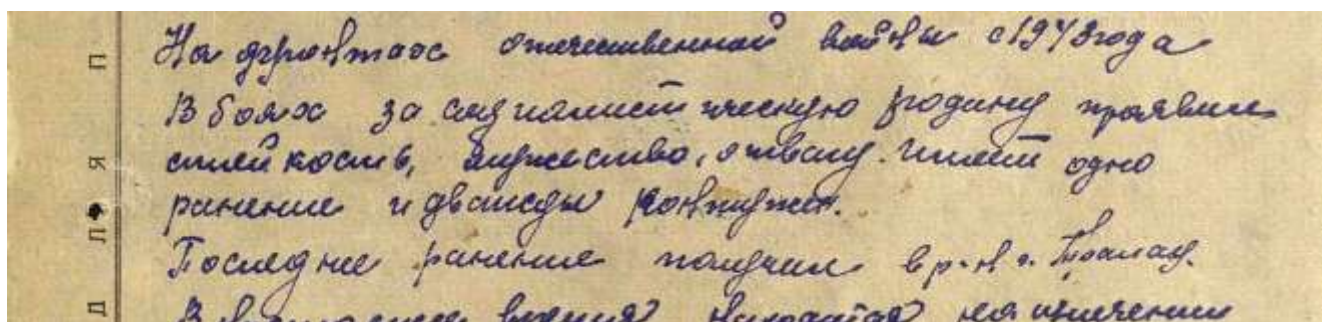 На фронтах отечественной войны с 1943 года
В боях за социалистическую родину проявил
стойкость, мужество, отвагу. Имеет одно
ранение и дважды контужен.
Последнее ранение получил в р-н г.
В настоящее время находится на излечении
П
Я
Л
Д